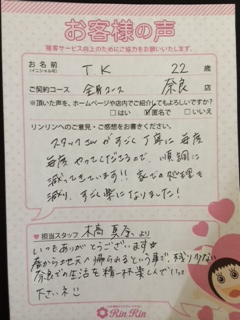 お客様の声
接客サービス向上のためにご協力をお願いいたします。
お名前
(イニシャル可)
T K
22 歳
ご契約コース
全身コース
奈良 店
※頂いた声を、ホームページや店内でご紹介してもよろしいですか?
□はい ☑匿名で □いいえ
リンリンへのご意見・ご感想をお書きください。
スタッフさんがすごく丁寧に毎度
毎度やってくださるので、順調に
減ってきています!! 家での処理も
減り、すごく楽になりました!
♥担当スタッフ
真 より
いつもありがとうございます☆
春から地元へ帰られるという事で、残り少ない
奈良での生活を精一杯楽しんで
下さいネ
RinRin